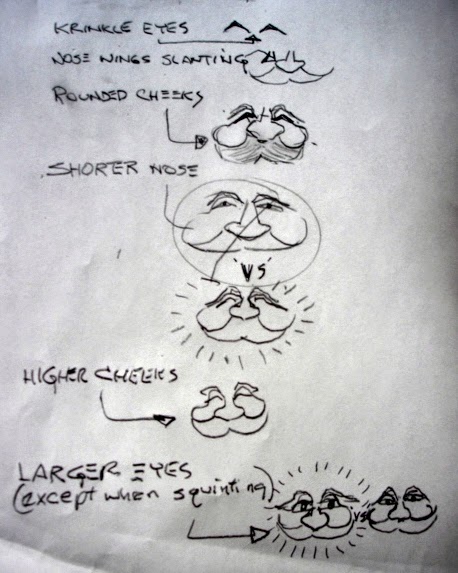 KRINKLE EYES
NOSE WINGS SLANTING
ROUNDED CHEEKS
SHORTER NOSE
VS
HIGHER CHEEKS
LARGER EYES
(except when squinting)
VS